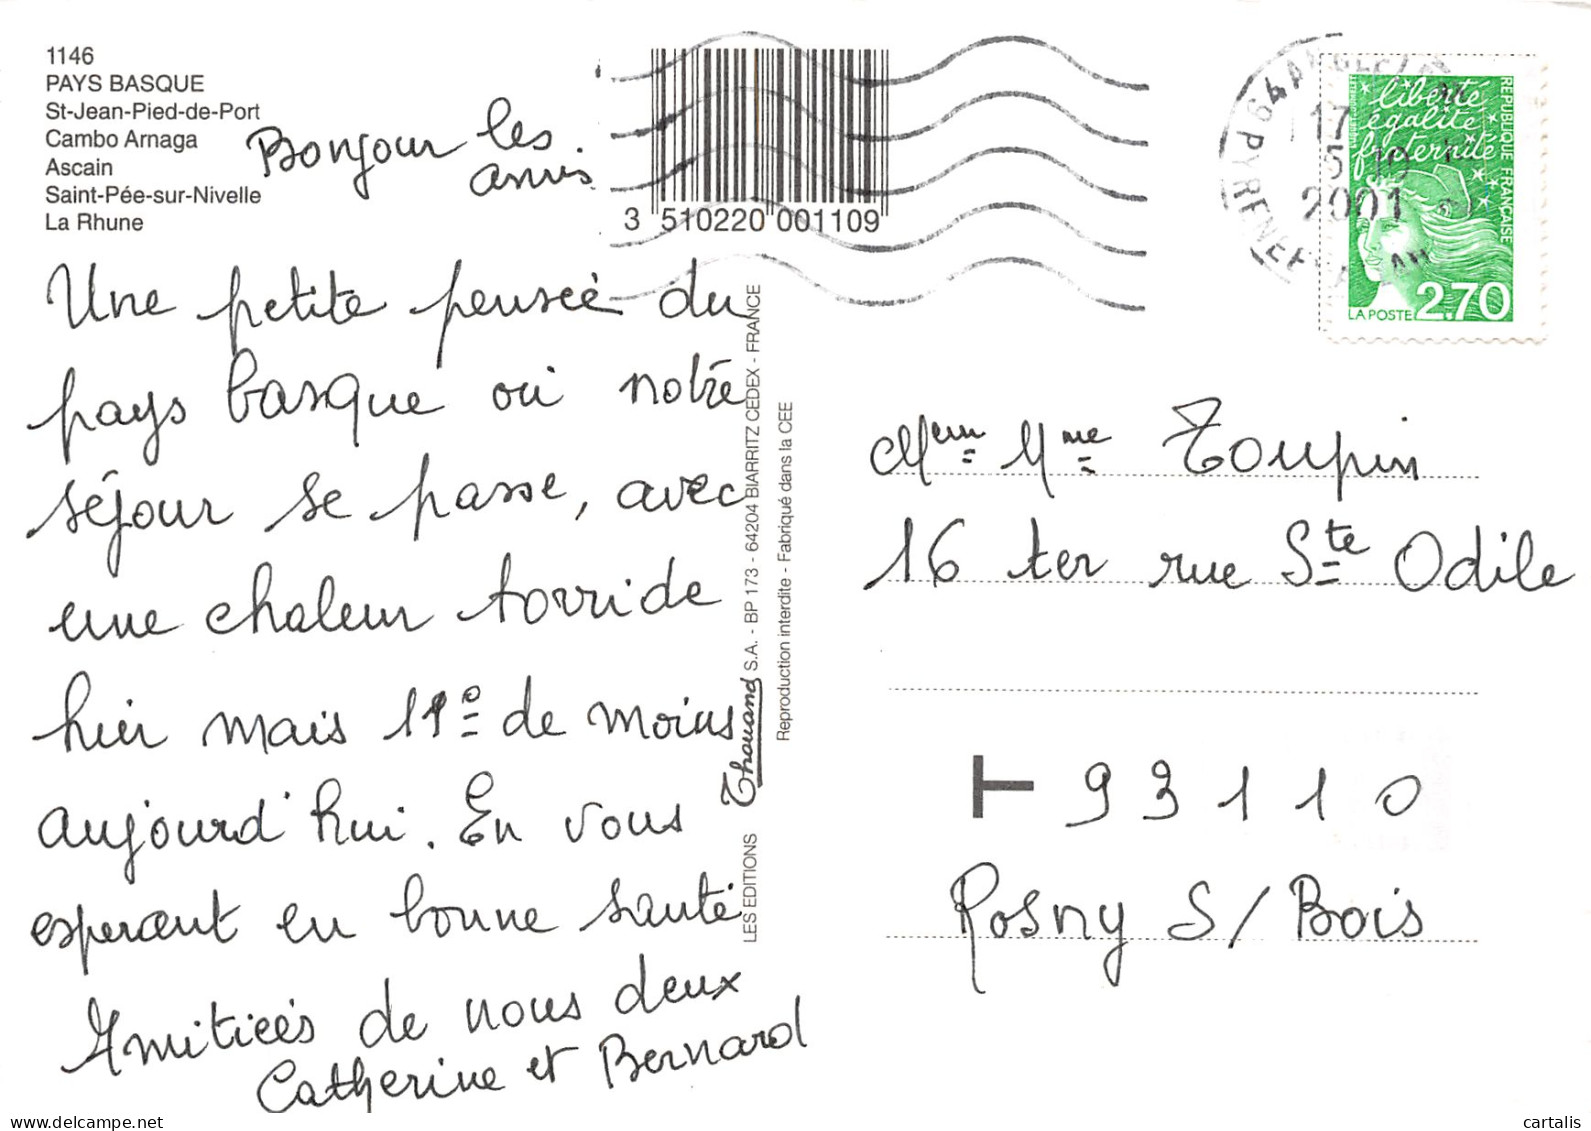 1146
PAYS BASQUE
St-Jean-Pied-de-Port
Cambo Arnaga
Ascain
Saint-Pée-sur-Nivelle
La Rhune
Bonjour les
amis
Une petite pensée du
pays basque où notre
séjour se passe, avec
une chaleur torride
hier mais 11° de moins
aujourd'hui. En vous
esperant en bonne santé
Amitiés de nous deux
Catherine et Bernard
3 510220 001109
LES EDITIONS Thouand S.A. - BP 173 - 64204 BIARRITZ CEDEX - FRANCE
Reproduction interdite - Fabriqué dans la CEE
64 ANGLET
17
5 10
2001
PYRENEES
liberté
égalité
fraternité
RÉPUBLIQUE FRANÇAISE
LA POSTE 2,70
Mr et Mme Toupin
16 ter rue Ste Odile
T 93110
Rosny S/ Bois
www.delcampe.net
cartalis